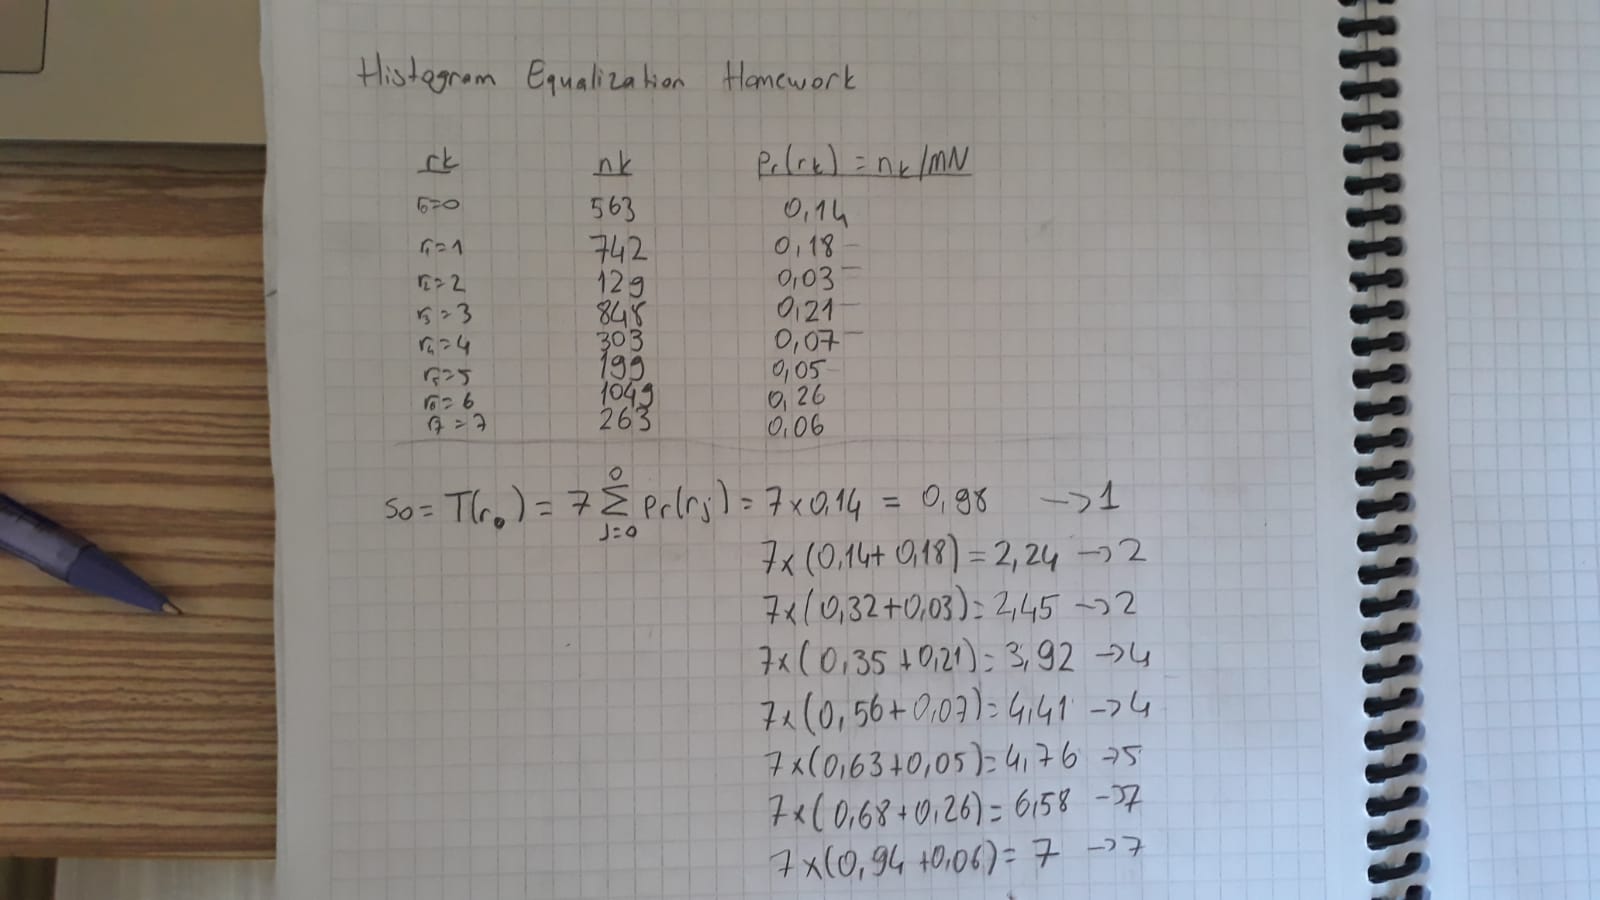 Histogram Equalization Homework
rk nk Pr(rk) = nk/MN
r0=0 563 0,14
r1=1 742 0,18
r2=2 129 0,03
r3=3 848 0,21
r4=4 303 0,07
r5=5 199 0,05
r6=6 1049 0,26
r7=7 263 0,06
s0 = T(r0) = 7 0 Σ j=0 Pr(rj) = 7x0,14 = 0,98 -> 1
7x(0,14+0,18)=2,24 -> 2
7x(0,32+0,03)=2,45 -> 2
7x(0,35+0,21)=3,92 -> 4
7x(0,56+0,07)=4,41 -> 4
7x(0,63+0,05)=4,76 -> 5
7x(0,68+0,26)=6,58 -> 7
7x(0,94+0,06)=7 -> 7